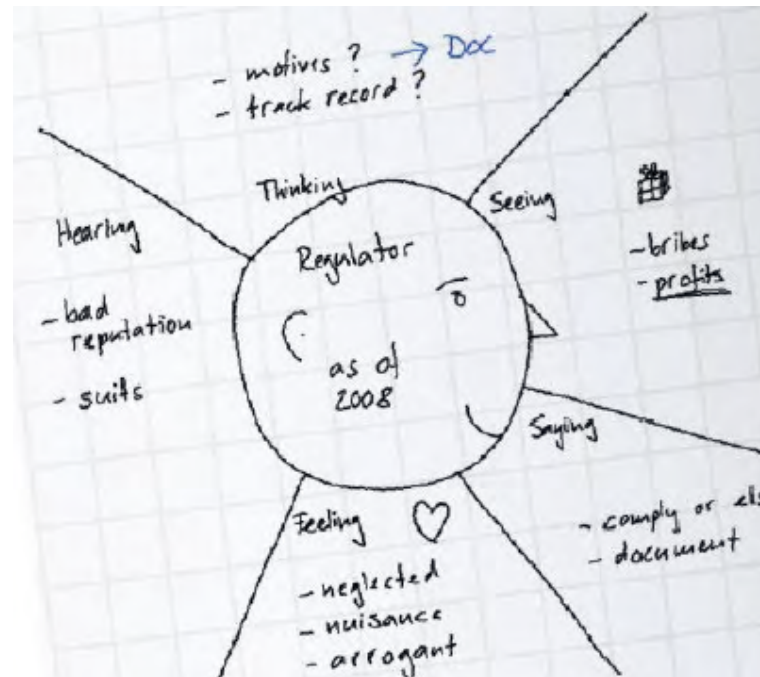 - motives ? → Doc
- track record ?
Thinking
Hearing
- bad
reputation
- suits
Regulator
as of
2008
Seeing
- bribes
- profits
Saying
- comply or els
- document
Feeling
- neglected
- nuisance
- arrogant